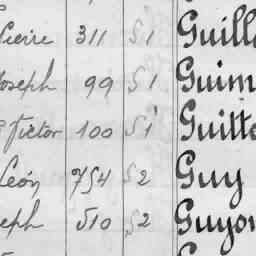 Pierre 311 S1 Guill
Joseph 99 S1 Guim
Victor 100 S1 Guitt
Léon 754 S2 Guy
seph 510 S2 Guyo